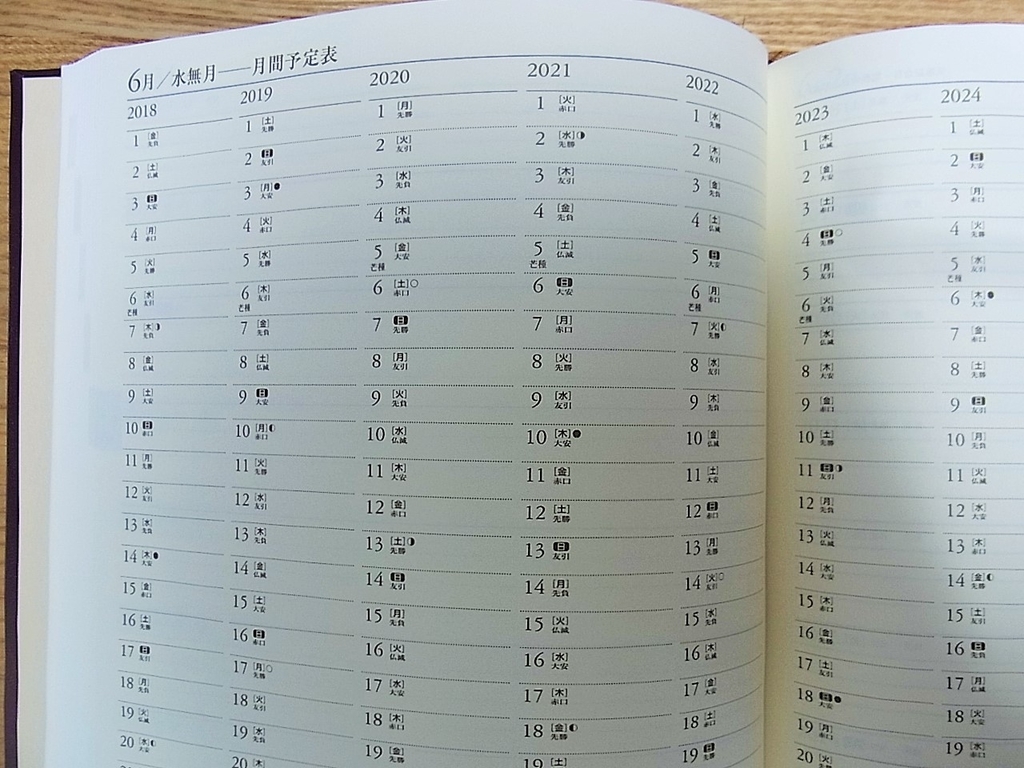 6月／水無月──月間予定表
2018
1 [金] 先負
2 [土] 仏滅
3 [日] 大安
4 [月] 赤口
5 [火] 先勝
6 [水] 友引
芒種
7 [木]◑ 先負
8 [金] 仏滅
9 [土] 大安
10 [日] 赤口
11 [月] 先勝
12 [火] 友引
13 [水] 先負
14 [木]● 大安
15 [金] 赤口
16 [土] 先勝
17 [日] 友引
18 [月] 先負
19 [火] 仏滅
20 [水]◐ 大安
2019
1 [土] 先勝
2 [日] 友引
3 [月]● 大安
4 [火] 赤口
5 [水] 先勝
6 [木] 友引
芒種
7 [金] 先負
8 [土] 仏滅
9 [日] 大安
10 [月]◐ 赤口
11 [火] 先勝
12 [水] 友引
13 [木] 先負
14 [金] 仏滅
15 [土] 大安
16 [日] 赤口
17 [月]○ 先勝
18 [火] 友引
19 [水] 先負
20 [木]
2020
1 [月] 先勝
2 [火] 友引
3 [水] 先負
4 [木] 仏滅
5 [金] 大安
芒種
6 [土]○ 赤口
7 [日] 先勝
8 [月] 友引
9 [火] 先負
10 [水] 仏滅
11 [木] 大安
12 [金] 赤口
13 [土]◑ 先勝
14 [日] 友引
15 [月] 先負
16 [火] 仏滅
17 [水] 大安
18 [木] 赤口
19 [金] 先勝
2021
1 [火] 赤口
2 [水]◑ 先勝
3 [木] 友引
4 [金] 先負
5 [土] 仏滅
芒種
6 [日] 大安
7 [月] 赤口
8 [火] 先勝
9 [水] 友引
10 [木]● 大安
11 [金] 赤口
12 [土] 先勝
13 [日] 友引
14 [月] 先負
15 [火] 仏滅
16 [水] 大安
17 [木] 赤口
18 [金]◐ 先勝
19 [土]
2022
1 [水] 先勝
2 [木] 友引
3 [金] 先負
4 [土] 仏滅
5 [日] 大安
6 [月] 赤口
芒種
7 [火]◐ 先勝
8 [水] 友引
9 [木] 先負
10 [金] 仏滅
11 [土] 大安
12 [日] 赤口
13 [月] 先勝
14 [火]○ 友引
15 [水] 先負
16 [木] 仏滅
17 [金] 大安
18 [土] 赤口
19 [日] 先勝
2023
1 [木] 仏滅
2 [金] 大安
3 [土] 赤口
4 [日]○ 先勝
5 [月] 友引
6 [火] 先負
芒種
7 [水] 仏滅
8 [木] 大安
9 [金] 赤口
10 [土] 先勝
11 [日]◑ 友引
12 [月] 先負
13 [火] 仏滅
14 [水] 大安
15 [木] 赤口
16 [金] 先勝
17 [土] 友引
18 [日]● 大安
19 [月] 赤口
20 [火] 先勝
2024
1 [土] 仏滅
2 [日] 大安
3 [月] 赤口
4 [火] 先勝
5 [水] 友引
芒種
6 [木]● 大安
7 [金] 赤口
8 [土] 先勝
9 [日] 友引
10 [月] 先負
11 [火] 仏滅
12 [水] 大安
13 [木] 赤口
14 [金]◐ 先勝
15 [土] 友引
16 [日] 先負
17 [月] 仏滅
18 [火] 大安
19 [水] 赤口